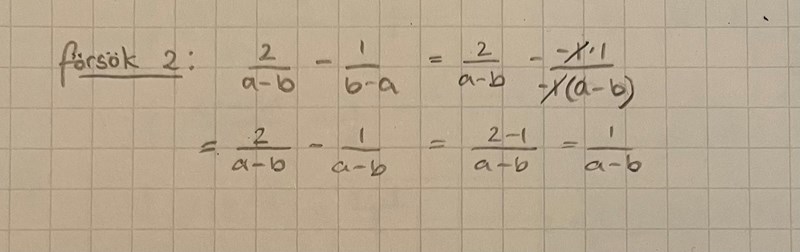 försök 2: 2/(a-b) - 1/(b-a) = 2/(a-b) - (-1·1)/(-1(a-b))
= 2/(a-b) - 1/(a-b) = (2-1)/(a-b) = 1/(a-b)